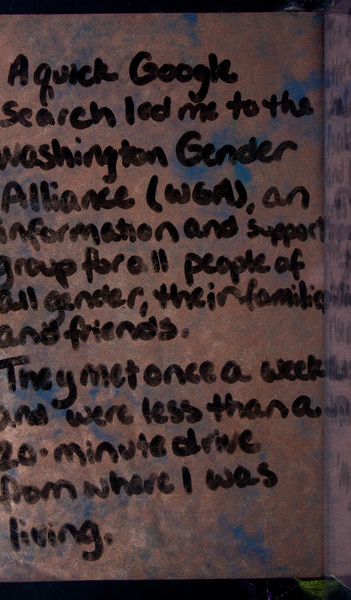 A quick Google
search led me to the
Washington Gender
Alliance (WGA), an
information and support
group for all people of
all gender, their families
and friends.
They met once a week
and were less than a
20-minute drive
from where I was
living.